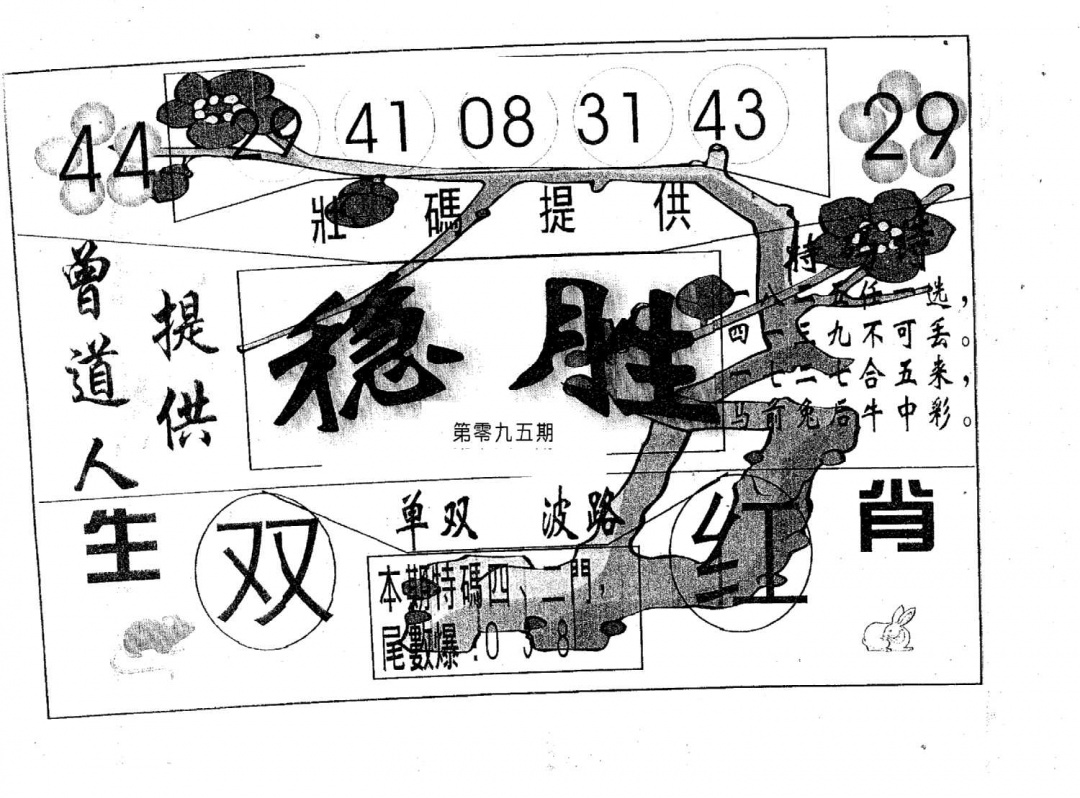 44 29 41 08 31 43 29
壯碼提供
曾道人
提供
稳胜
第零九五期
特
特
一八二五任一选，
四一三九不可丢。
一七二七合五来，
马前兔后牛中彩。
单双 波路
生 双 红 肖
本期特碼四、二門，
尾數爆：0 3 8